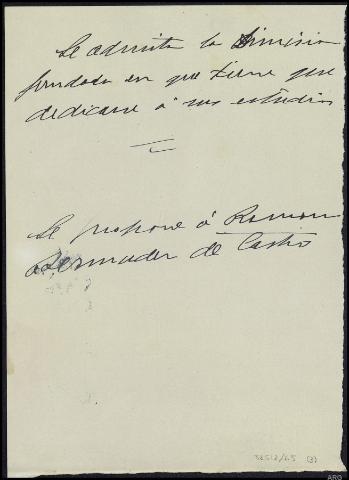 Se admite la Dimision
fundada en que tiene que
dedicarse á sus estudios
Se propone á Ramon
Bermudez de Castro
(3)
ARG